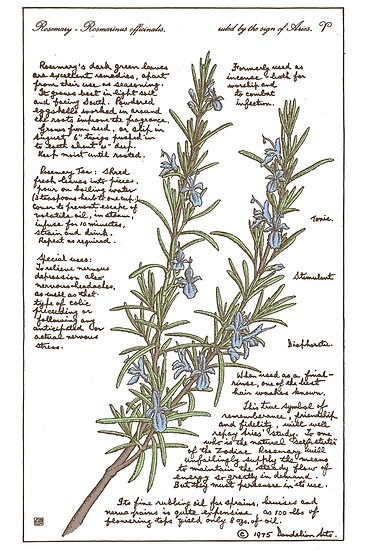 Rosemary - Rosmarinus officinalis.
ruled by the sign of Aries. ♈
Rosemary's dark green leaves
are excellent remedies, apart
from their use as seasoning.
It grows best in light soil
and facing South. Powdered
eggshells worked in around
the roots improve the fragrance.
Grows from seed, or slip in
August 6" twigs pushed in
to earth about 4" deep.
Keep moist until rooted.
Rosemary Tea: Shred
fresh leaves into pieces,
pour on boiling water
(3 teaspoons herb to one cup)
cover to prevent escape of
volatile oil, in steam
infuse for 10 minutes,
strain and drink.
Repeat as required.
Special uses:
To relieve nervous
depression also
nervous headaches,
as well as that
type of colic
preceding or
following any
anticipated or
actual nervous
stress.
Formerly used as
incense both for
worship and
to combat
infection.
Tonic.
Stimulant
Diaphoretic.
When used as a final
rinse, one of the best
hair washes known.
This true symbol of
remembrance, friendship
and fidelity will well
repay Aries' study. To one
who is the natural
of the Zodiac Rosemary will
unfailingly supply the means
to maintain the steady flow of
energy so greatly in demand.
But they must persevere in its use.
Its fine rubbing oil for sprains, bruises and
nerve pains is quite expensive, as 100 lbs of
flowering tops yield only 8 ozs. of oil.
© 1975 Dandelion Arts.